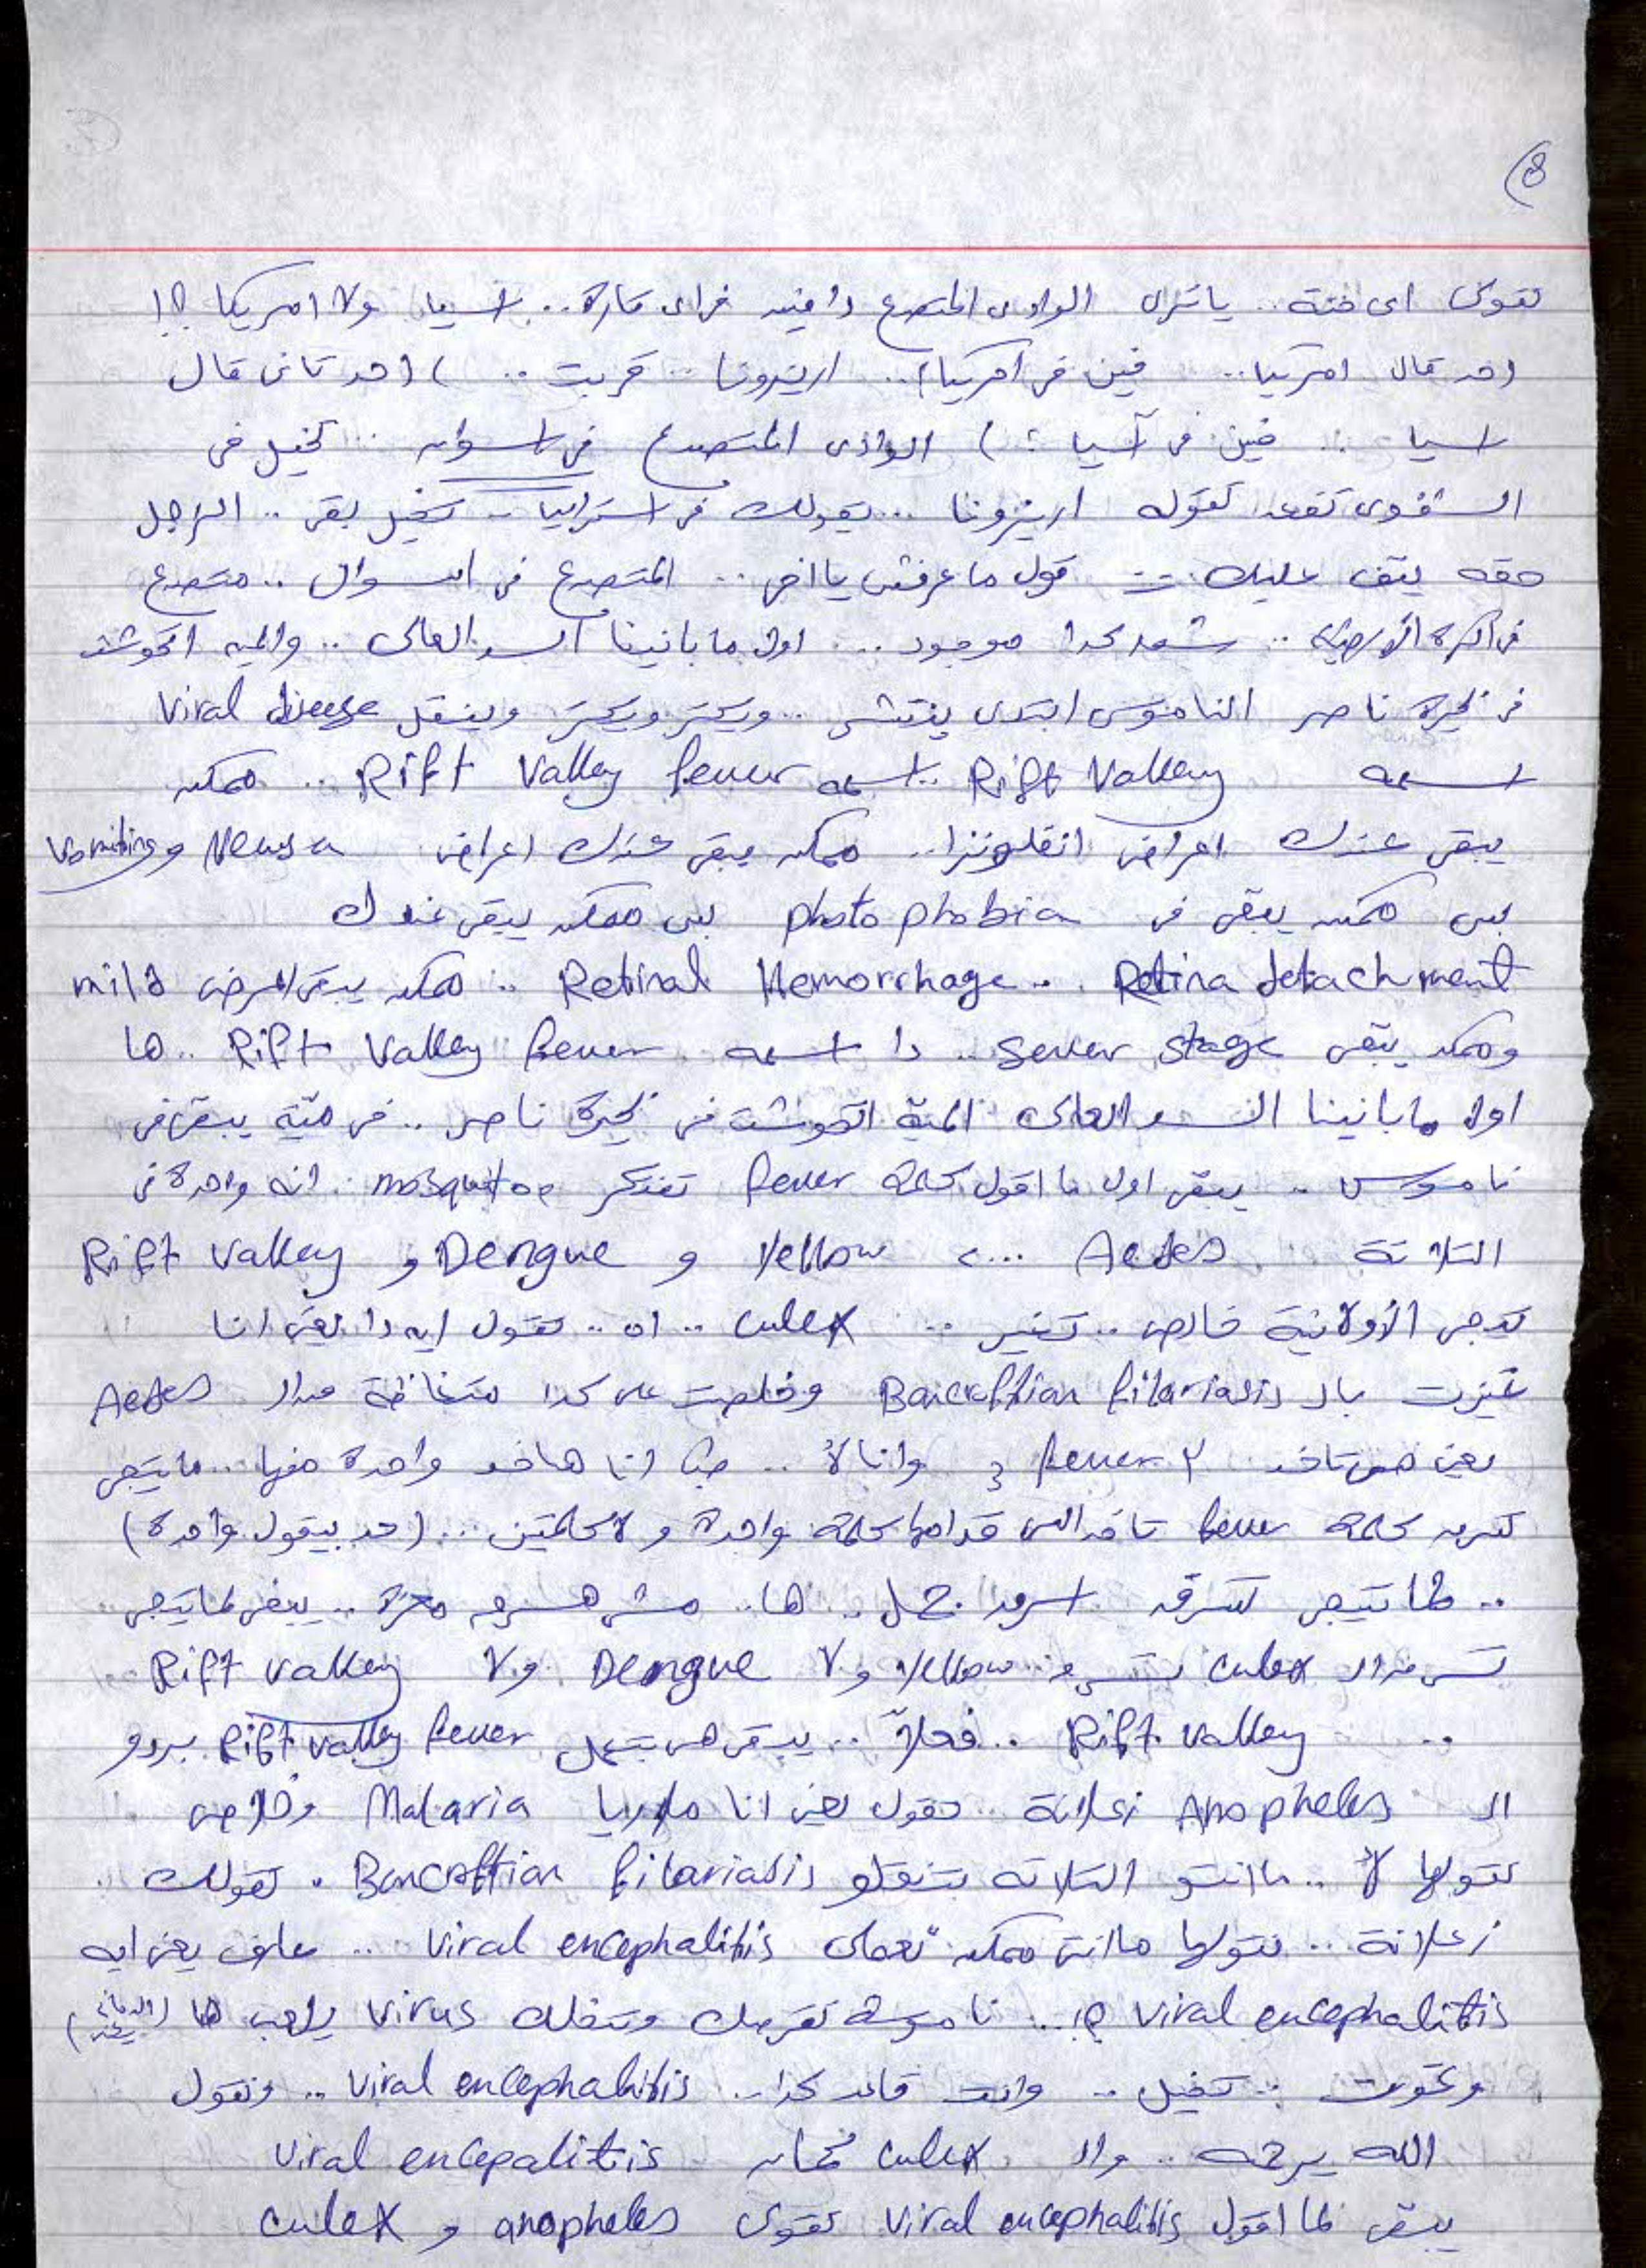 8
تقولى اى حتة .. ياترى الوادى المتصدع دا فين فى اى قارة .. اسيا ولا امريكا ؟!
احد قال امريكا .. فين فى امريكا؟ .. اريزونا .. قربت .. ) احد تانى قال
اسيا .. فين فى آسيا ؟ ) الوادى المتصدع فى اسوان .. تخيل فى
الشفوى تقعد تقوله اريزونا ... يقولك فى استراليا .. تخيل بقى .. الراجل
حقه يتف عليك .. قول ماعرفش يااخى .. المتصدع فى اسوان .. متصدع
فى الكرة الأرضية .. كدا موجود .. اول مابانينا السد العالى .. والميه اتحوشت
فى بحيرة ناصر الناموس ابتدى ينتشر .. ويكتر ويكتر وينقل Viral disease
اسمه Rift Valley .. اسمه Rift Valley fever .. ممكن
يبقى عندك اعراض انفلونزا .. ممكن يبقى عندك اعراض Neusea و Vomiting
بس ممكن يبقى فى photo phobia بس ممكن يبقى عندك
Retina detachment .. Retinal Hemorrhage .. ممكن يبقى المرض mild
وممكن يبقى sever stage .. دا اسمه Rift Valley fever .. ها
اول مابانينا السد العالى المية اتحوشت فى بحيرة ناصر .. فى ميّة يبقى فى
ناموس .. يبقى اول ما اقول كلمة fever تفتكر mosquitoe انه واحدة فى
التلاتة Aedes ... > Yellow و Dengue و Rift Valley
تيجى الأولانية خالص .. تغير .. culex .. اه .. تقول ايه دا يعنى انا
تميزت بال Bancroftian filariasis وخلصت على كدا متغاظة من ال Aedes
يعنى هى تاخد ٣ fever وانا لأ .. طب انا هاخد واحدة منها .. ماتيجى
تسرق كلمة fever تاخد اللى قدامها كلمة واحدة ولا كلمتين ... (حد بيقول واحدة)
.. لما تيجى تسرق اسرق جمل .. ها .. مش هسرق معزة .. يبقى لما تيجى
تسرق ال culex تسرق .. Yellow ولا Dengue ولا Rift Valley
.. Rift Valley .. فعلاً .. يبقى هى بتعمل Rift Valley fever بردو
ال Anopheles زعلانة .. تقول يعنى انا ملاريا Malaria وخلاص
تقولها لأ .. ماانتو التلاته بتنقلو Bancroftian filariasis . تقولك
زعلانة ... تقولها ماانتى ممكن تعملى Viral encephalitis .. عارف يعنى ايه
Viral encephalitis ؟! .. ناموسة تقرصك وتنقلك Virus يلعب هنا
وتموت .. تخيل .. وانت قاعد كدا .. Viral encephalitis .. وتقول
الله يرحمه .. وال culex كمان Viral encepalitis
يبقى لما اقول Viral encephalitis تقولى anopheles و culex